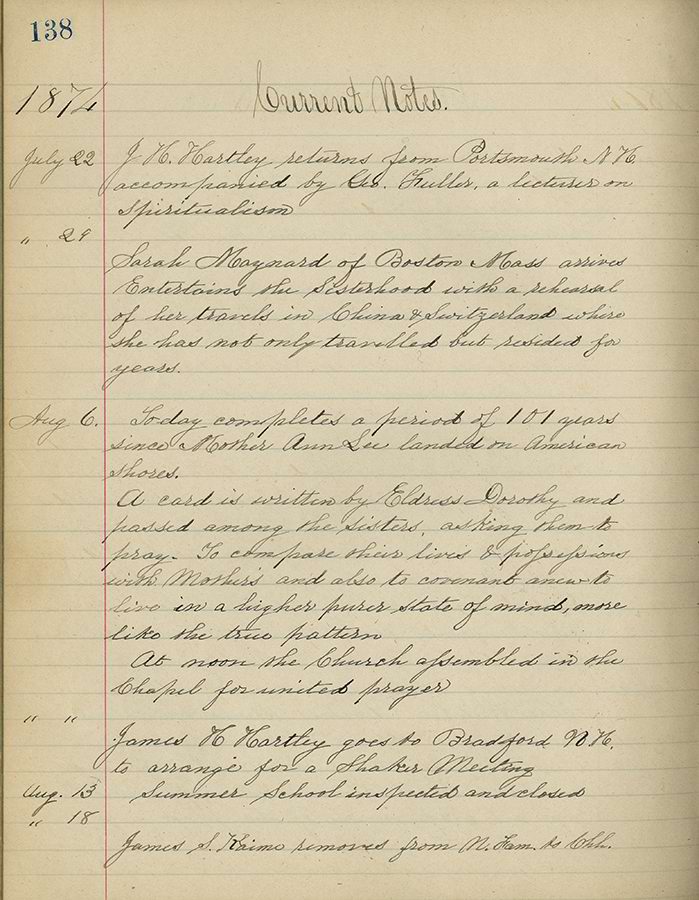 138
1874 Current Notes.
July 22 J. H. Hartley returns from Portsmouth N H.
accompanied by Geo. Fuller, a lecturer on
Spiritualism
" 29
Sarah Maynard of Boston Mass arrives
Entertains the Sisterhood with a rehearsal
of her travels in China & Switzerland where
she has not only travelled but resided for
years.
Aug 6. Today completes a period of 101 years
since Mother Ann Lee landed on American
shores.
A card is written by Eldress Dorothy and
passed among the sisters, asking them to
pray. To compare their lives & professions
with Mother's and also to covenant anew to
live in a higher purer state of mind, more
like the true pattern
At noon the Church assembled in the
Chapel for united prayer
" "
James H Hartley goes to Bradford N H.
to arrange for a Shaker Meeting
Aug. 13 Summer School inspected and closed
" 18
James S. Kaime removes from N. Fam. to Chh.